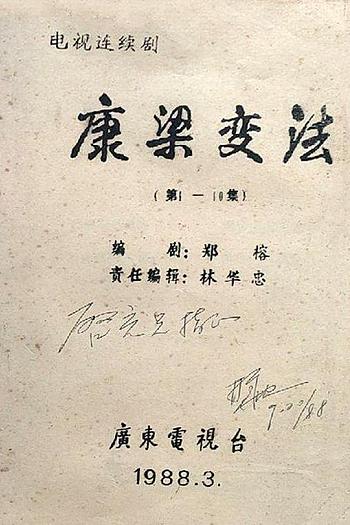 电视连续剧
康梁变法
(第1—10集)
编 剧：郑 榕
责任编辑：林华忠
兄指正
廣東電視台
1988.3.